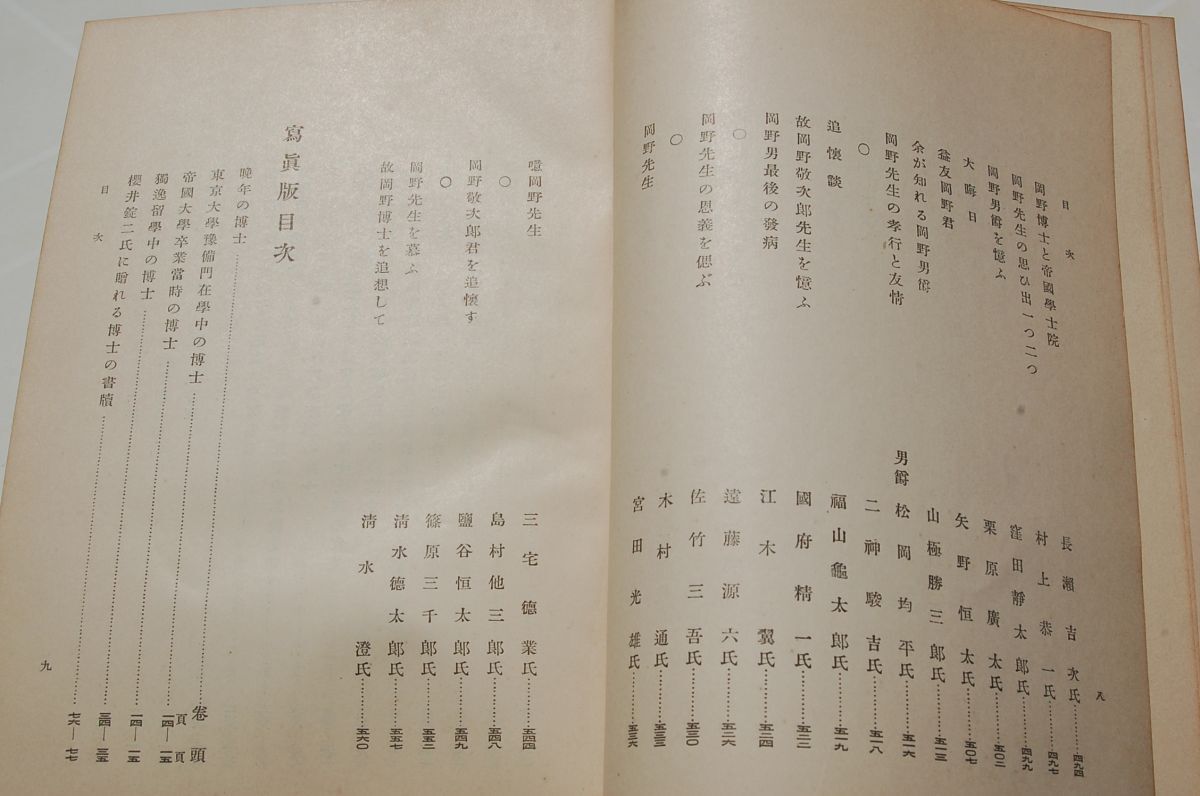 目次
八
岡野博士と帝國學士院 長瀨吉次氏…………四九四
岡野先生の思ひ出一つ二つ 村上恭一氏…………四九七
岡野男爵を憶ふ 窪田靜太郎氏…………四九九
大晦日 栗原廣太氏…………五〇二
益友岡野君 矢野恒太氏…………五〇七
余が知れる岡野男爵 山極勝三郎氏…………五一三
岡野先生の孝行と友情 男爵松岡均平氏…………五一六
〇 二神駿吉氏…………五一八
追懷談 福山龜太郎氏…………五一九
故岡野敬次郎先生を憶ふ 國府精一氏…………五二二
岡野男最後の發病 江木翼氏…………五二四
〇 遠藤源六氏…………五二六
岡野先生の恩義を偲ぶ 佐竹三吾氏…………五三〇
〇 木村通氏…………五三三
岡野先生 宮田光雄氏…………五三六
噫岡野先生 三宅德業氏…………五四四
〇 島村他三郎氏…………五四八
岡野敬次郎君を追懷す 鹽谷恒太郎氏…………五四九
〇 篠原三千郎氏…………五五二
岡野先生を慕ふ 淸水德太郎氏…………五五七
故岡野博士を追想して 淸水澄氏…………五六〇
寫眞版目次
晚年の博士…………卷頭
頁頁
東京大學豫備門在學中の博士…………一四—一五
帝國大學卒業當時の博士…………一四—一五
獨逸留學中の博士…………三四—三五
櫻井錠二氏に贈れる博士の書牘…………七六—七七
目次
九